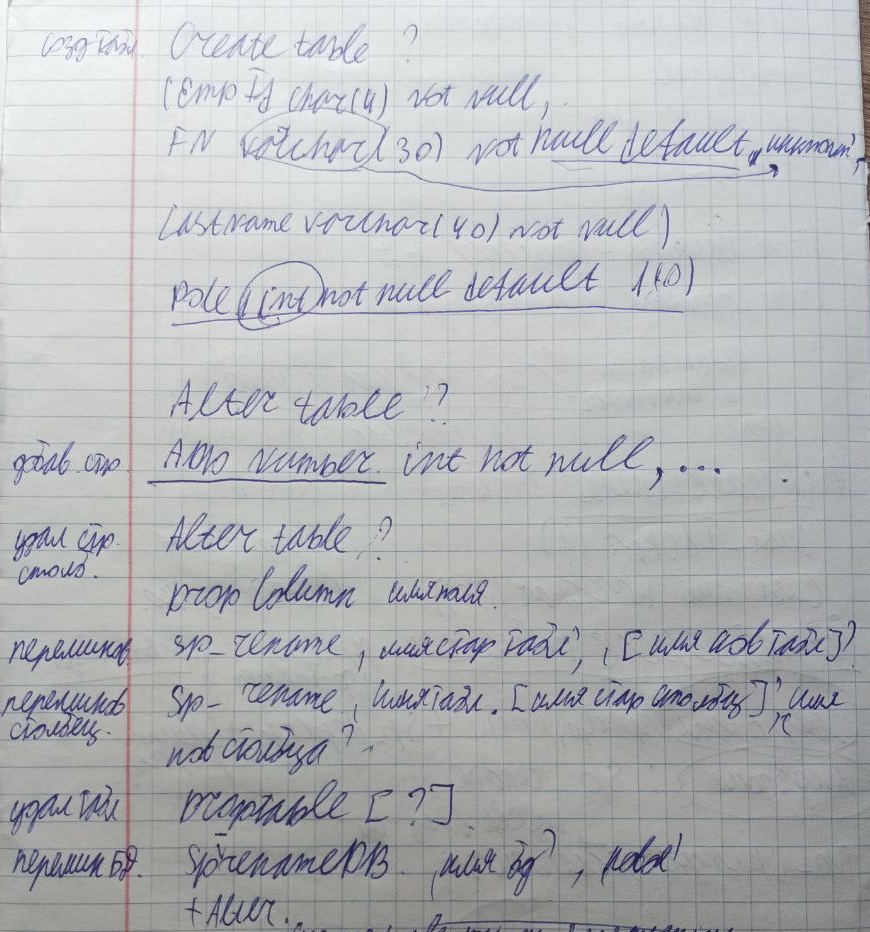 созд табл. Create table ?
(Emp Id char(4) not null,
FN varchar(30) not null default "
Lastname varchar(40) not null)
Pole (int) not null default (10)
Alter table ?
добав. стр. ADD number int not null, ...
удал стр. Alter table ?
столб.
drop Column имя поля.
переимнов. sp_rename 'имя стар табл', '[имя нов табл]'
переимнов sp_rename 'имя табл.[имя стар столбец]', 'имя
столбец.
нов столбца'
удал табл Drop table [?]
переимн БД. sp_renameDB 'имя бд', 'новая'
+ Alter.